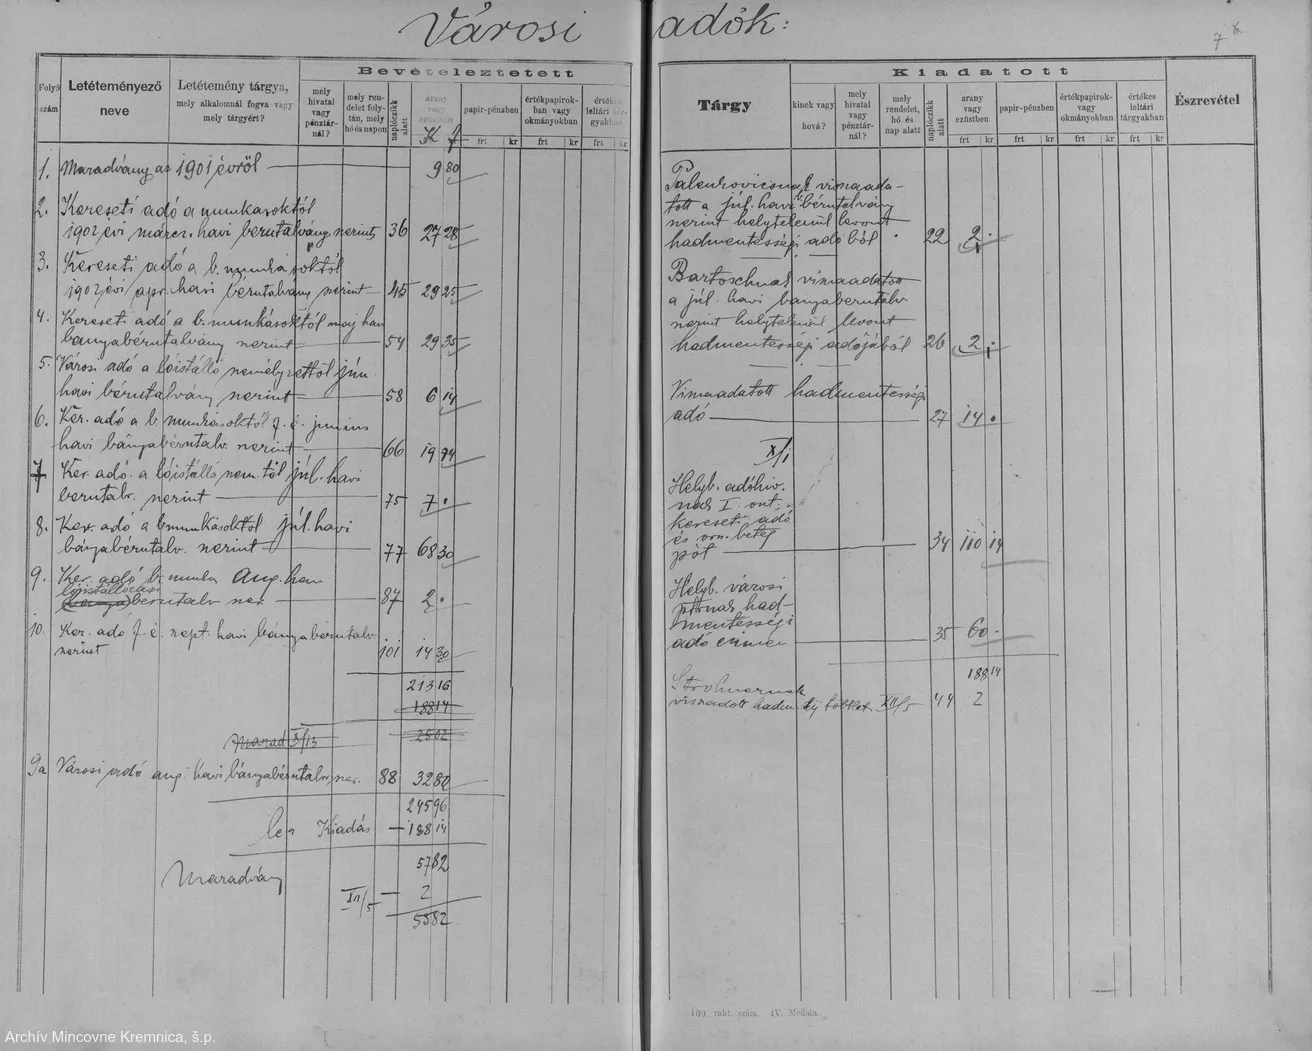 Városi adók:
7
Bevételeztetett
Folyó szám
Letéteményező neve
Letétemény tárgya, mely alkalomnál fogva vagy mely tárgyért?
mely hivatal vagy pénztárnál?
mely rendelet folytán, mely hó és napon
naplóczikk alatt
arany vagy ezüstben
K f
papir-pénzben
frt kr
értékpapirokban vagy okmányokban
frt kr
értékes leltári tárgyakban
frt kr
1. Maradvány az 1901 évről 9 80
2. Kereseti adó a munkasoktól
1902 évi márcz. havi bérutalvány szerint 36 27 28
3. Kereseti adó a b. munkásoktól
1902 évi apr. havi bérutalvány szerint 45 29 25
4. Kereseti adó a b. munkásoktól maj havi
banyabérutalvány szerint 54 29 35
5. Városi adó a lóistálló személyzettől jún.
havi bérutalvány szerint 58 6 14
6. Ker. adó a b. munkásoktól f. é. junius
havi bányabérutalv. szerint 66 19 94
7 Ker. adó a lóistálló szem. től júl. havi
berutalv. szerint 75 7 .
8. Ker. adó a bmunkásoktól júl. havi
bányabérutalv. szerint 77 68 30
9. Ker. adó b. munka aug. hav
berutalv szer. 87 2 .
10. Ker. adó f. é. sept. havi bányabérutalv
szerint 101 14 30
213 16
188 14
Marad XI/13 25 02
9a Városi adó aug. havi bányabérutalv szer. 88 32 80
245 96
le a Kiadás — 188 14
57 82
Maradvány
XII/5 — 2
55 82
Kiadatott
Tárgy
kinek vagy hová?
mely hivatal vagy pénztárnál?
mely rendelet, hó és nap alatt
naplóczikk alatt
arany vagy ezüstben
frt kr
papir-pénzben
frt kr
értékpapirok- vagy okmányokban
frt kr
értékes leltári tárgyakban
frt kr
Észrevétel
visszaada-
tott a júl. havi bérutalvány
szerint helytelenül levont
hadmentességi adó ból 22 2 .
Bartoschnak visszaadatott
a júl. havi banyaberutalv
szerint helytelenül levont
hadmentességi adójából 26 2 .
Visszaadatott hadmentességi
adó 27 14 .
X/1
Helyb. adóhiv.
nak I. oszt.
kereseti adó
és orsz. beteg
pót 34 110 14
Helyb. városi
ptárnak had-
mentességi
adó címen 35 60 -
188 14
visszadott hadm. díj többlet XII/5 44 2
109. rakt. szám. (V. Mellán.
Archív Mincovne Kremnica, š.p.